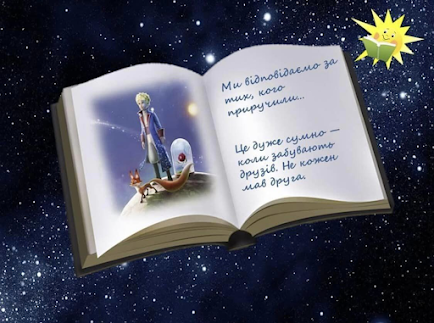 Ми відповідаємо за
тих, кого
приручили...
Це дуже сумно —
коли забувають
друзів. Не кожен
мав друга.